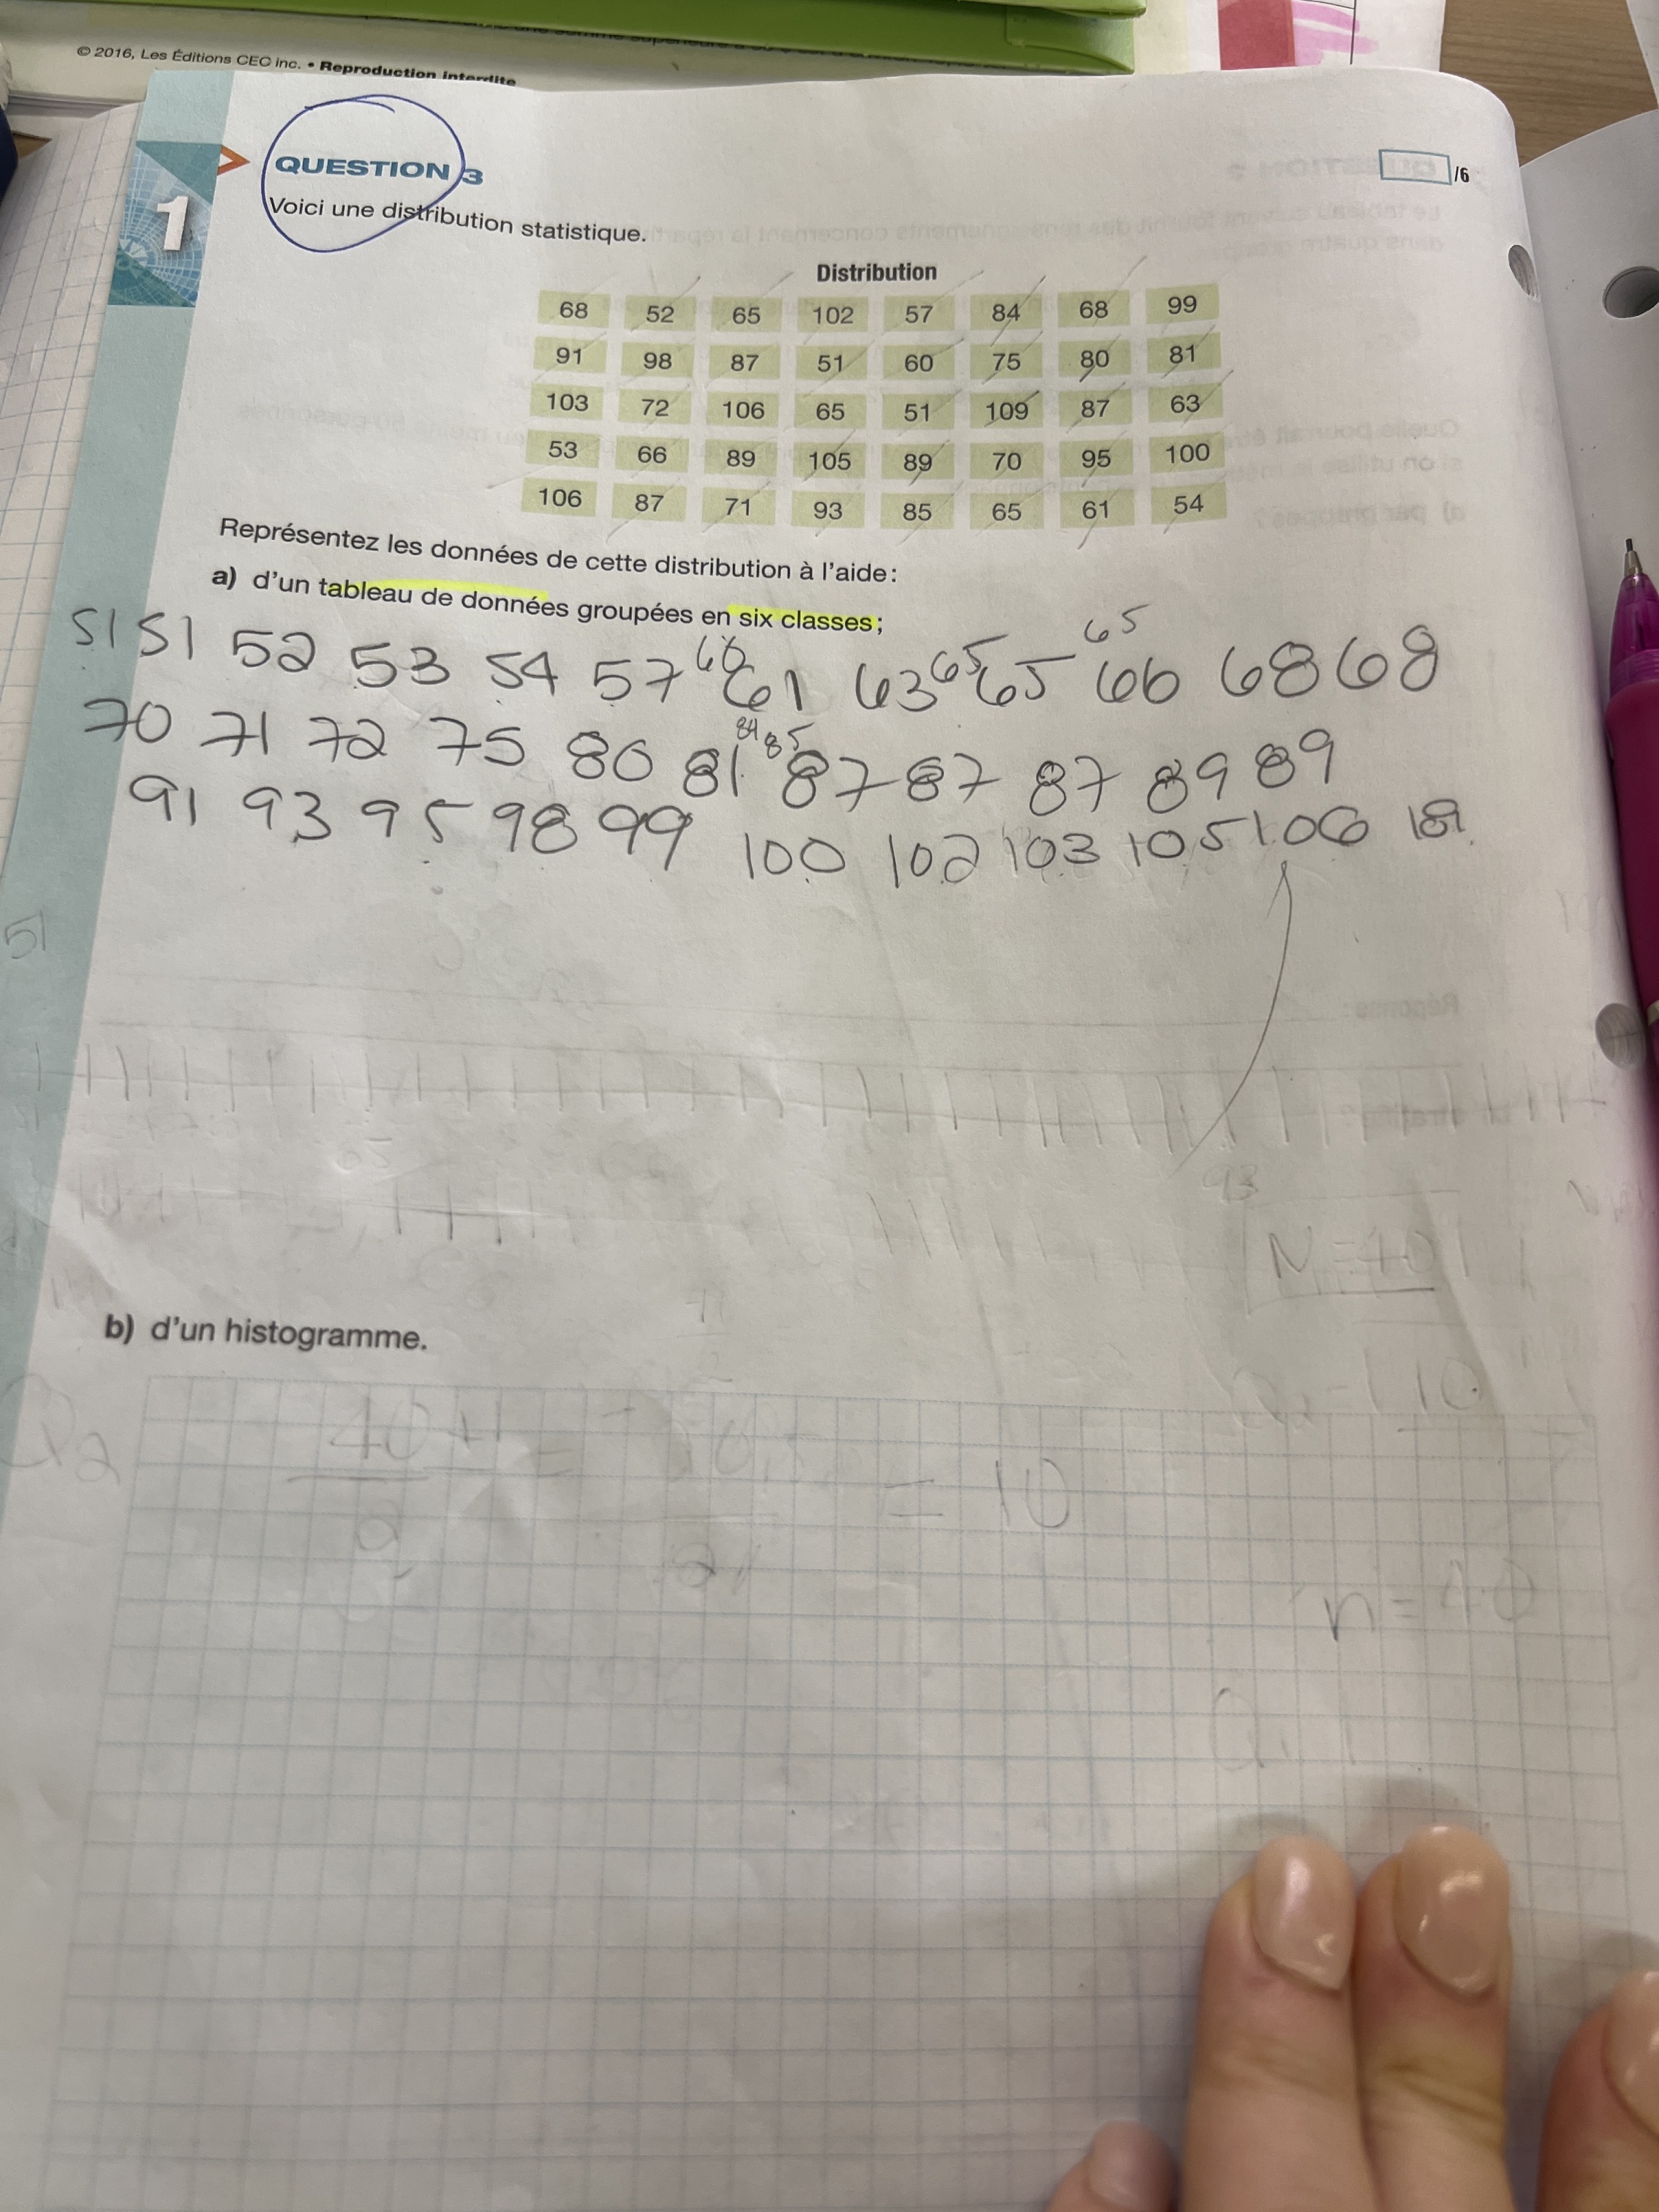 © 2016, Les Éditions CEC inc. • Reproduction interdite
1
QUESTION 3
/6
Voici une distribution statistique.
Distribution
68 52 65 102 57 84 68 99
91 98 87 51 60 75 80 81
103 72 106 65 51 109 87 63
53 66 89 105 89 70 95 100
106 87 71 93 85 65 61 54
Représentez les données de cette distribution à l'aide:
a) d'un tableau de données groupées en six classes;
51 51 52 53 54 57 60 61 63 65 65 65 66 68 68
70 71 72 75 80 81 84 85 87 87 87 89 89
91 93 95 98 99 100 102 103 105 106
51
93
N = 40
b) d'un histogramme.
= 10
n = 40